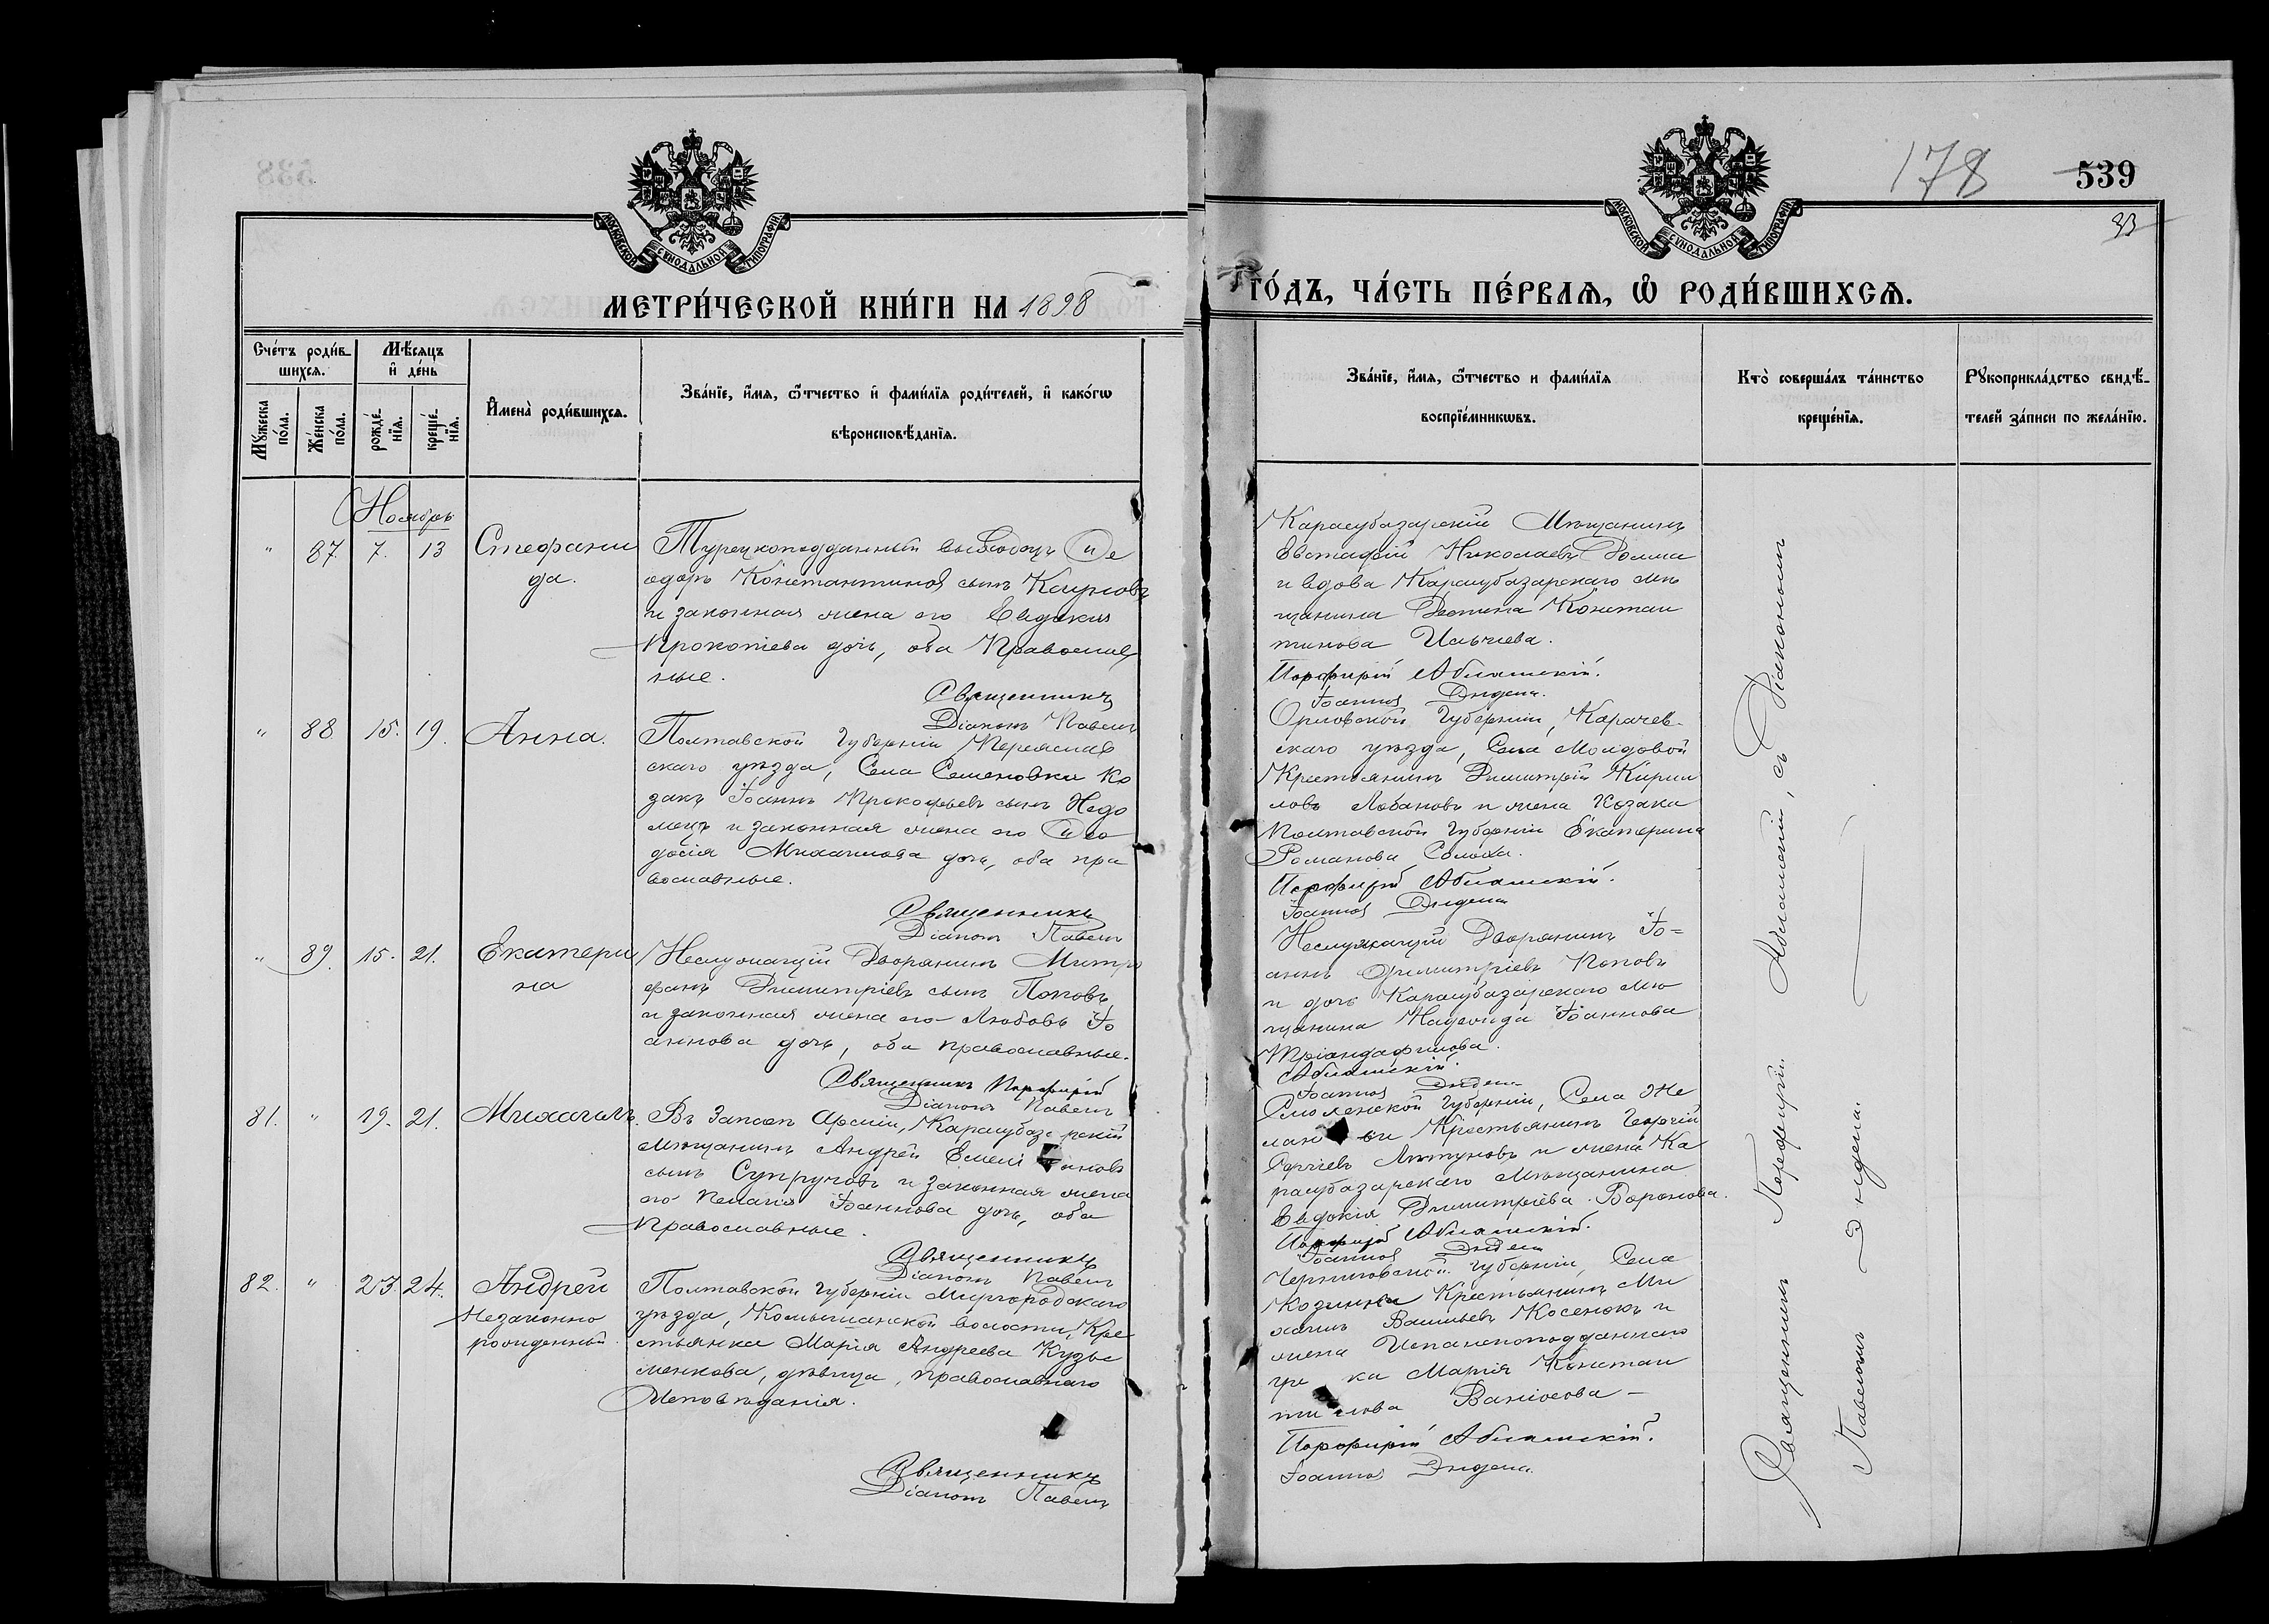 178
539
33
МОСКОВСКОЙ СѴНОДАЛЬНОЙ ТИПОГРАФІИ
МОСКОВСКОЙ СѴНОДАЛЬНОЙ ТИПОГРАФІИ
МЕТРИ́ЧЕСКОЙ КНИ́ГИ НА 1898
ГО́ДЪ, ЧА́СТЬ ПЕ́РВАЯ, Ѡ РОДИ́ВШИХСЯ.
Сче́тъ роди́в-
шихся.
Мѣ́сяцъ
и де́нь
Мꙋ́жеска
по́ла.
Же́нска
по́ла.
рожде́-
нїя.
креще́-
нїя.
Имена̀ роди́вшихся.
Зва́нїе, и́мя, ѻ҆́тчество и фами́лїя роди́телей, и како́гѡ
вѣроисповѣ́данїя.
Зва́нїе, и́мя, ѻ҆́тчество и фами́лїя
воспрїе́мникѡвъ.
Кто̀ соверша́лъ та́инство
креще́нїя.
Рꙋкоприкла́дство свидѣ́-
телей за́писи по жела́нїю.
Ноябрь
" 87 7. 13 Стефани
да.
Турецкоподданный Ѳе
одоръ Константиновъ сынъ
и законная жена его Евдокия
Прокопіева дочь, оба Православ
ные.
Священникъ
Діаконъ Павелъ
Карасубазарскій Мѣщанинъ
Евстафій Николаевъ
и вдова Карасубазарскаго мѣ
щанина Констан
тинова
Порфирій Аблямскій.
Іоанновъ Эндека.
" 88 15. 19. Анна.
Полтавской Губерніи Переяслав
скаго уѣзда, Села Семеновки Ко
закъ Іоаннъ Прокофьевъ сынъ Недо
и законная жена его Ѳео
досія Михаилова дочь, оба пра
вославные.
Священникъ
Діаконъ Павелъ
Орловской Губерніи, Карачев-
скаго уѣзда, Села Молдовой
Крестьянинъ Димитрій Кирил
ловъ Лобановъ и жена Козака
Полтавской Губерніи Екатерина
Романова Солоха.
Порфирій Аблямскій.
Іоанновъ Эндека
" 89. 15. 21. Екатери
на
Неслужащій Дворянинъ Митро
фанъ Димитріевъ сынъ Поповъ,
и законная жена его Любовь Іо
аннова дочь, оба православные.
Священникъ Порфирій
Діаконъ Павелъ
Неслужащій Дворянинъ Іо=
аннъ Димитріевъ Поповъ
и дочь Карасубазарскаго мѣ
щанина Надежда Іоаннова
Тріандафилова.
Аблямскій.
Іоанновъ Эндека
81. " 19. 21. Михаилъ.
Въ Запасѣ Арміи, Карасубазарскій
Мѣщанинъ Андрей
сынъ Супруновъ и законная жена
его Пелагія Іоаннова дочь, оба
Православные.
Священникъ
Діаконъ Павелъ
Смоленской Губерніи, Села
Крестьянинъ Георгій
Сергіевъ и жена Ка
расубазарскаго Мѣщанина
Евдокія Димитріева Воронова.
Порфирій Аблямскій.
Іоанновъ Эндека
82. " 23. 24. Андрей
Незаконно
рожденный
Полтавской Губерніи Миргородскаго
уѣзда, Комышанской волости, Кре
стьянка Марія Андреева Кузь
менкова, дѣвица, православнаго
Исповѣданія.
Священникъ
Діаконъ Павелъ
Черниговской Губерніи, Села
Крестьянинъ Ми
хаилъ Васильевъ Косенокъ и
жена
Марія Констан
тинова
Порфирій Аблямскій.
Іоанновъ Эндека.
Священникъ Порфирій Аблямскій, съ Діакономъ
Павломъ Эндека.